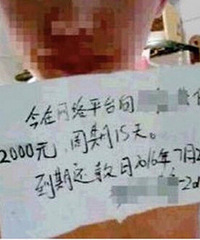 今在网络平台向
2000元,周期15天。
到期还款日2016年7月2